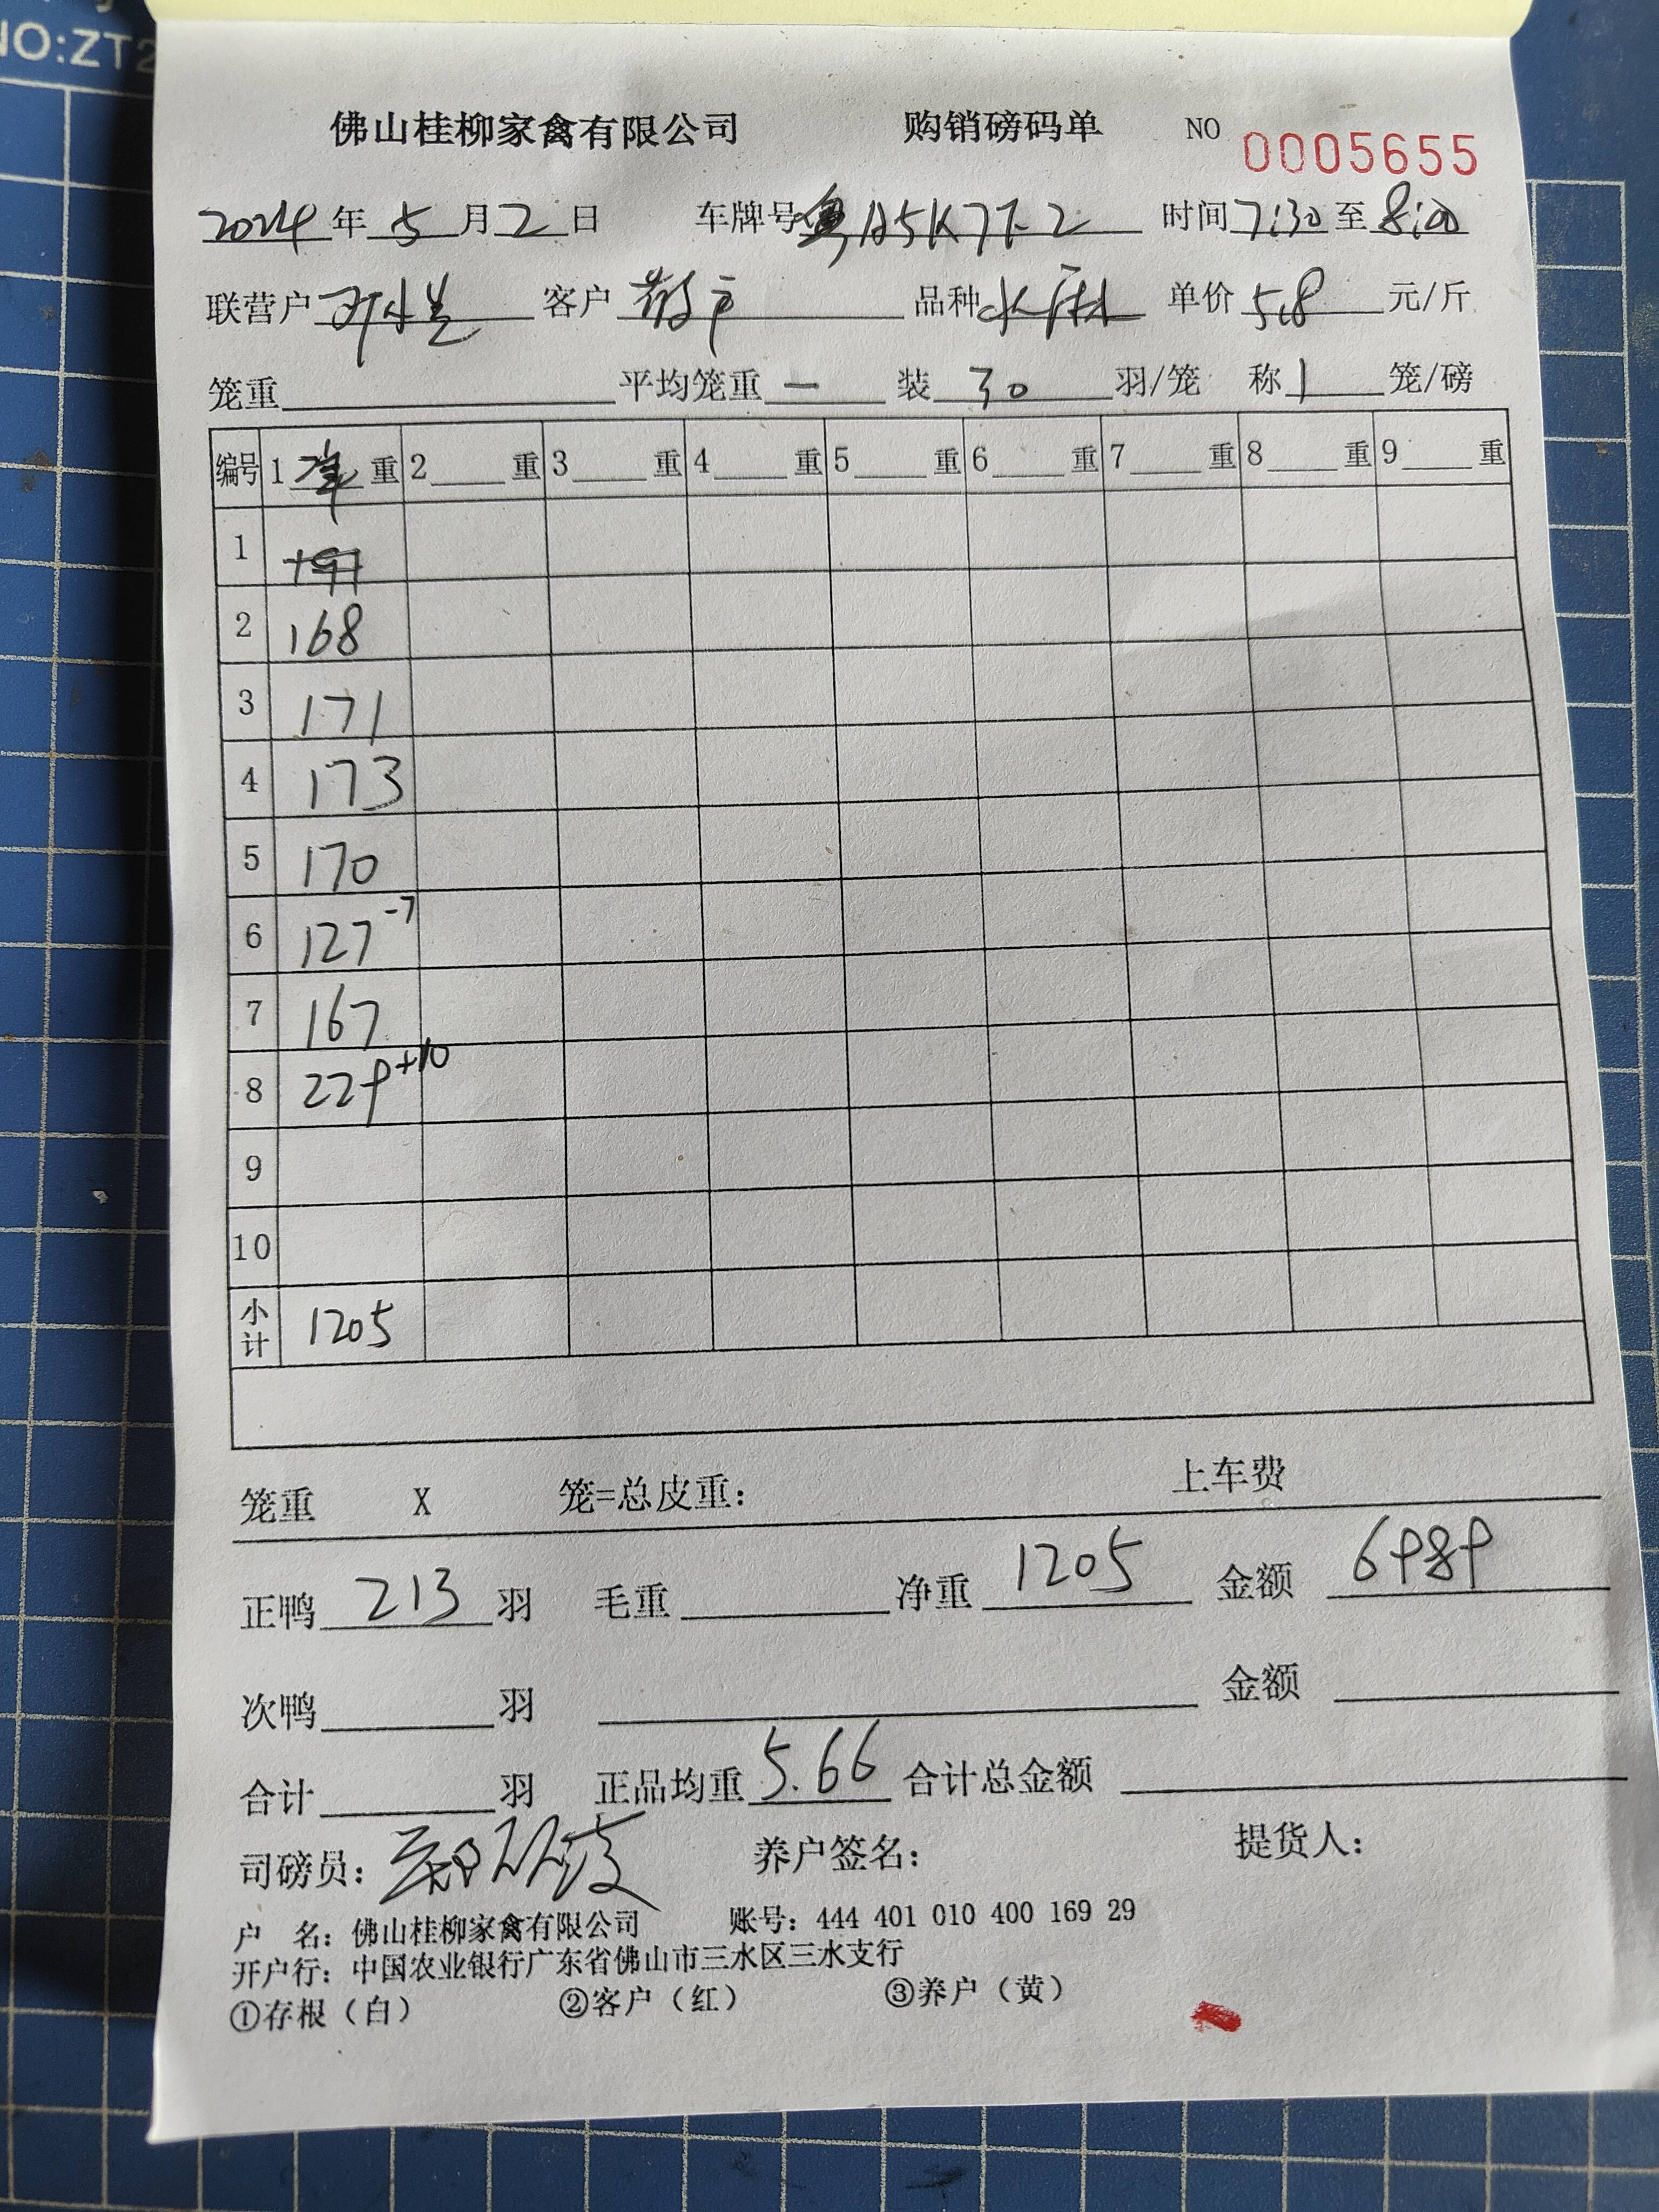 NO:ZT2
佛山桂柳家禽有限公司 购销磅码单 NO 0005655
2024年5月2日 车牌号粤A5K7F2 时间7:30至8:00
联营户 客户散户 品种 单价5.8元/斤
笼重 平均笼重一 装30羽/笼 称1笼/磅
编号 1净重 2重 3重 4重 5重 6重 7重 8重 9重
1 191
2 168
3 171
4 173
5 170
6 127-7
7 167
8 229+10
9
10
小计 1205
笼重 X 笼=总皮重: 上车费
正鸭213羽 毛重 净重1205 金额6989
次鸭 羽 金额
合计 羽 正品均重5.66 合计总金额
司磅员: 养户签名: 提货人:
户 名: 佛山桂柳家禽有限公司 账号: 444 401 010 400 169 29
开户行: 中国农业银行广东省佛山市三水区三水支行
①存根(白) ②客户(红) ③养户(黄)